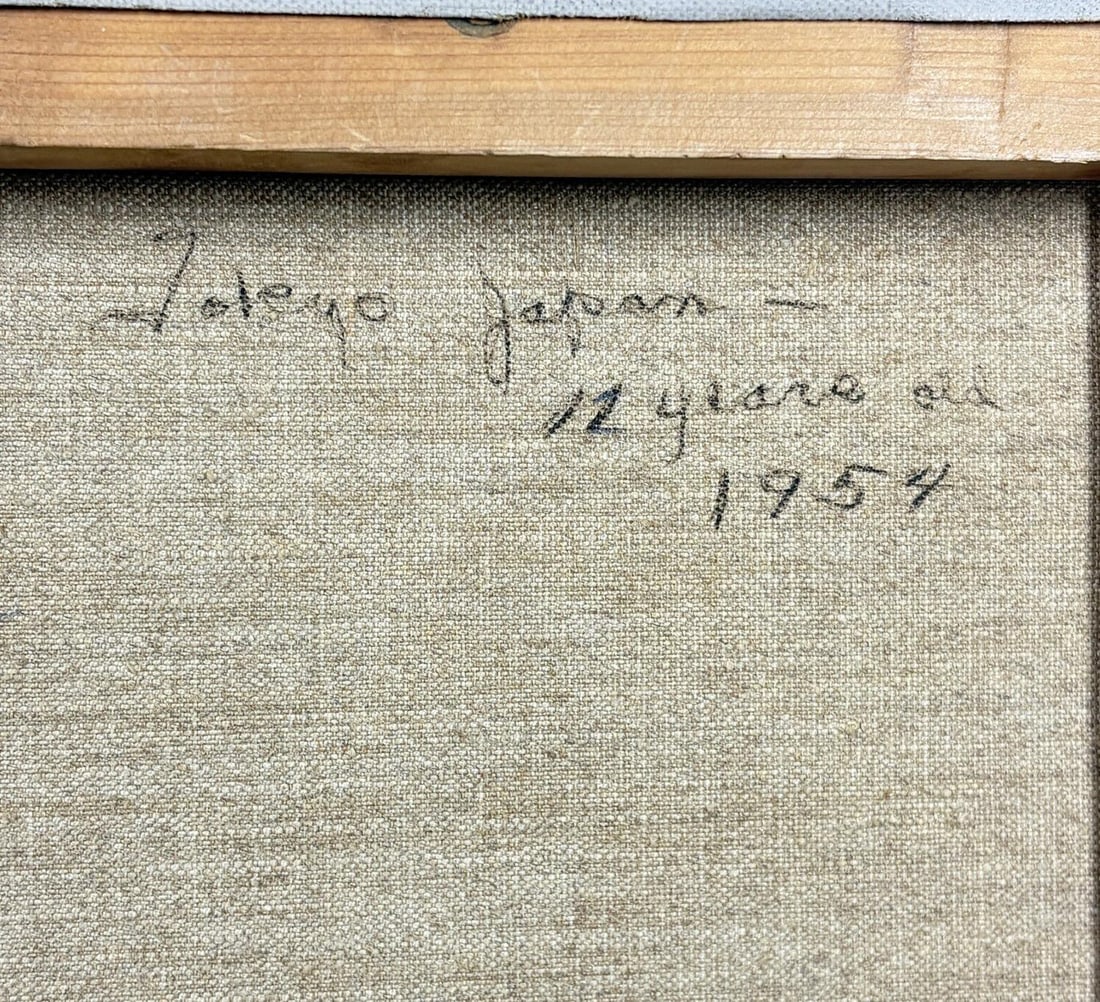 Tokyo Japan -
12 years old
1954